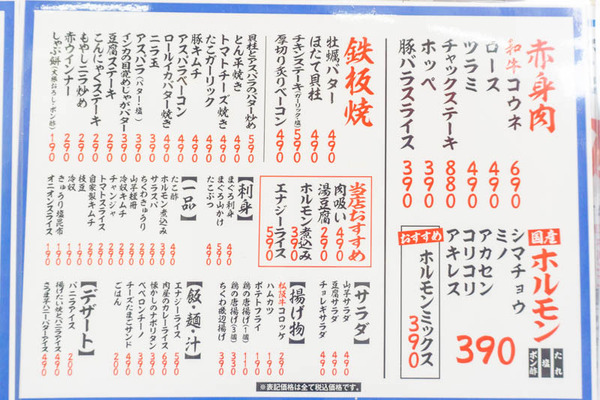 赤身肉
和牛コウネ 690
ロース 490
ツラミ 490
チャックステーキ 880
ホッペ 390
豚バラスライス 390
国産ホルモン
たれ
塩
ポン酢
シマチョウ
ミノ
アカセン
コリコリ
アキレス
390
おすすめ
ホルモンミックス
390
鉄板焼
牡蠣バター 490
ほたて貝柱 490
チキンステーキ(ガーリック・塩) 590
厚切り炙りベーコン 490
貝柱とアスパラのバター炒め 590
とん平焼き 490
トマトチーズ焼き 490
たこガーリック 490
豚キムチ 490
アスパラベーコン 490
ロールイカバター焼き 490
ニラ玉 390
アスパラ(バター・塩) 390
インカの目覚めじゃがバター 390
豆腐ステーキ 290
こんにゃくステーキ 290
もやしニラ炒め 290
赤ウインナー 290
しゃぶ餅(大根おろし・ポン酢) 190
当店おすすめ
肉吸い 490
湯豆腐 290
ホルモン煮込み 390
エナジーライス 590
【刺身】
まぐろ刺身 490
まぐろ山かけ 590
たこぶつ 490
【一品】
たこ酢 490
ホルモン煮込み 390
サラスパ
ちくわきゅうり
山芋短冊
冷奴キムチ
チャンジャ
トマトスライス
自家製キムチ
枝豆
冷奴
きゅうり塩昆布
オニオンスライス 190
【サラダ】
山芋サラダ 490
豆腐サラダ 490
チョレギサラダ 490
【揚げ物】
松阪牛コロッケ 290
ハムカツ 190
ポテトフライ 190
鶏の唐揚げ(1塊) 110
鶏の唐揚げ(3塊) 330
ちくわ磯辺揚げ 390
【飯・麺・汁】
エナジーライス 590
肉屋のカレーライス 490
懐かしのナポリタン 390
ペペロンチーノ 390
チーズたまごサンド 490
ごはん 200
【デザート】
バニラアイス 200
揚げたい焼とバニラアイス 490
さつま芋ハニーバターアイス 490
※表記価格は全て税込価格です。